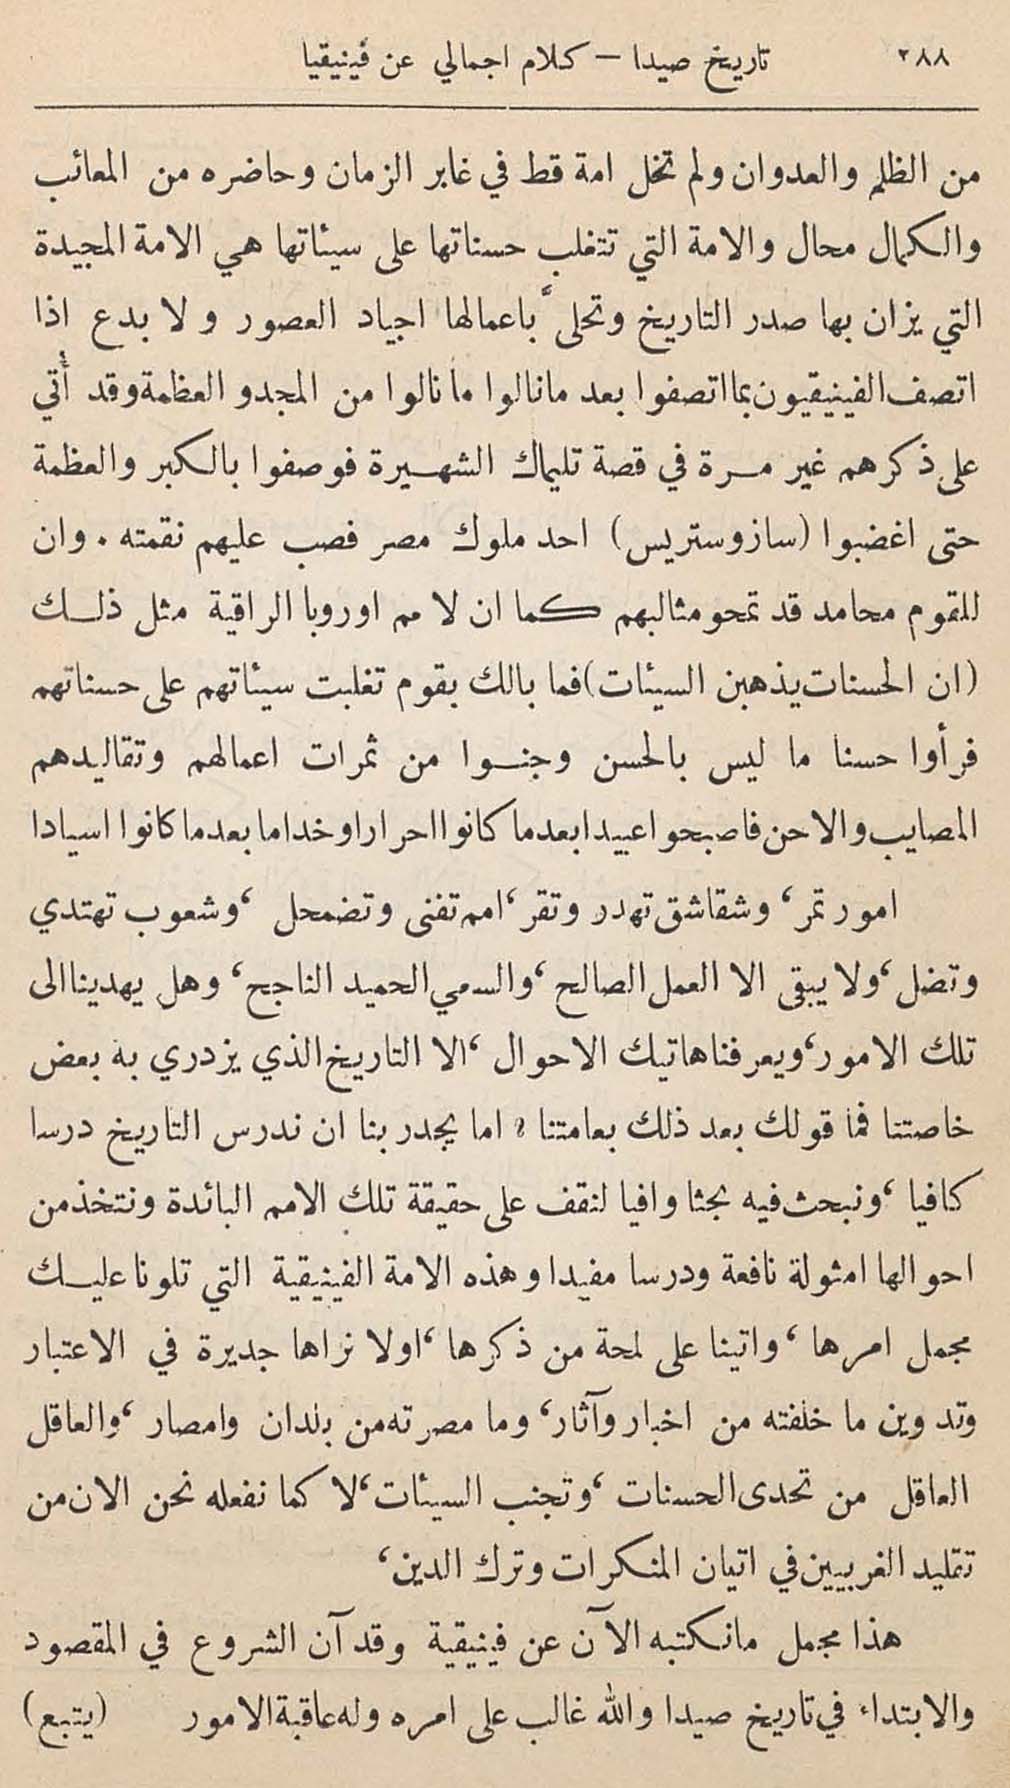 ٢٨٨ تاريخ صيدا — كلام اجمالي عن فينيقيا
من الظلم والعدوان ولم تخل امة قط في غابر الزمان وحاضره من المعائب
والكمال محال والامة التي تتغلب حسناتها على سيئاتها هي الامة المجيدة
التي يزان بها صدر التاريخ وتحلىَّ باعمالها اجياد العصور ولا بدع اذا
اتصف الفينيقيون بما اتصفوا بعد مانالوا ما نالوا من المجد والعظمة وقد أُتي
على ذكرهم غير مرة في قصة تليماك الشهيرة فوصفوا بالكبر والعظمة
حتى اغضبوا (سازوستريس) احد ملوك مصر فصب عليهم نقمته . وان
للقوم محامد قد تمحو مثالبهم كما ان لا مم اوروبا الراقية مثل ذلك
(ان الحسنات يذهبن السيئات) فما بالك بقوم تغلبت سيئاتهم على حسناتهم
فرأوا حسنا ما ليس بالحسن وجنوا من ثمرات اعمالهم وتقاليدهم
المصايب والاحن فاصبحوا عبيدا بعدما كانوا احرارا وخداما بعدما كانوا اسيادا
امور تمر ، وشقاشق تهدر وتقر ، امم تفنى وتضمحل ، وشعوب تهتدي
وتضل ، ولا يبقى الا العمل الصالح ، والسعي الحميد الناجح ، وهل يهدينا الى
تلك الامور ، ويعرفنا هاتيك الاحوال ، الا التاريخ الذي يزدري به بعض
خاصتنا فما قولك بعد ذلك بعامتنا ؟ اما يجدر بنا ان ندرس التاريخ درسا
كافيا ، ونبحث فيه بحثا وافيا لنقف على حقيقة تلك الامم البائدة ونتخذ من
احوالها امثولة نافعة ودرسا مفيدا وهذه الامة الفينيقية التي تلونا عليك
مجمل امرها ، واتينا على لمحة من ذكرها ، اولا نراها جديرة في الاعتبار
وتدوين ما خلفته من اخبار وآثار ، وما مصرته من بلدان وامصار ، والعاقل
العاقل من تحدى الحسنات ، وتجنب السيئات ، لا كما نفعله نحن الان من
تقليد الغربيين في اتيان المنكرات وترك الدين ،
هذا مجمل مانكتبه الآن عن فينيقية وقد آن الشروع في المقصود
والابتداء في تاريخ صيدا والله غالب على امره وله عاقبة الامور (يتبع)